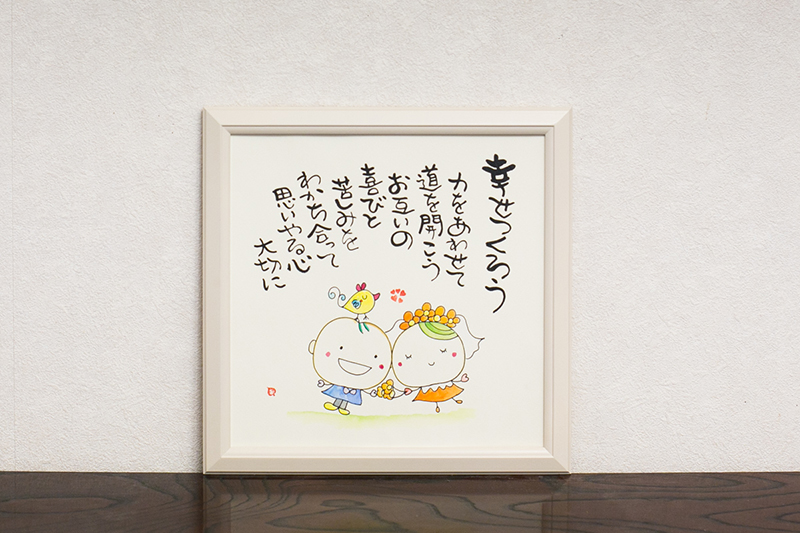 幸せつくろう
力をあわせて
道を開こう
お互いの
喜びと
苦しみを
わかち合って
思いやる心
大切に